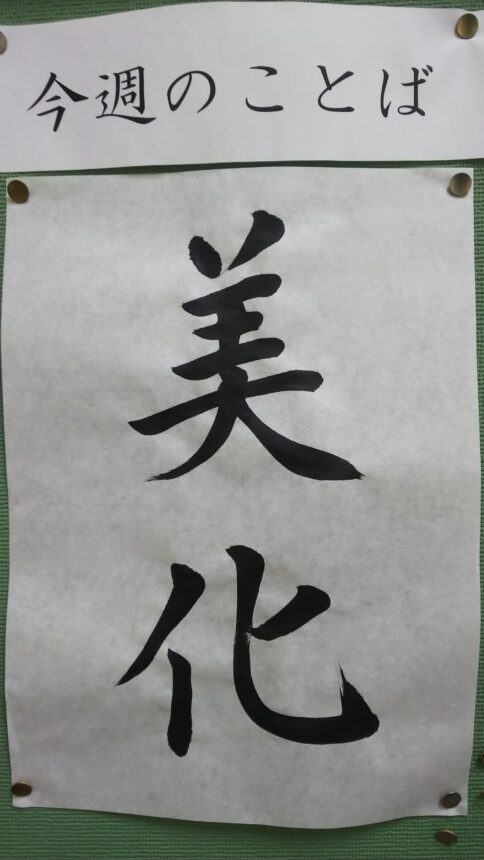 今週のことば
美化